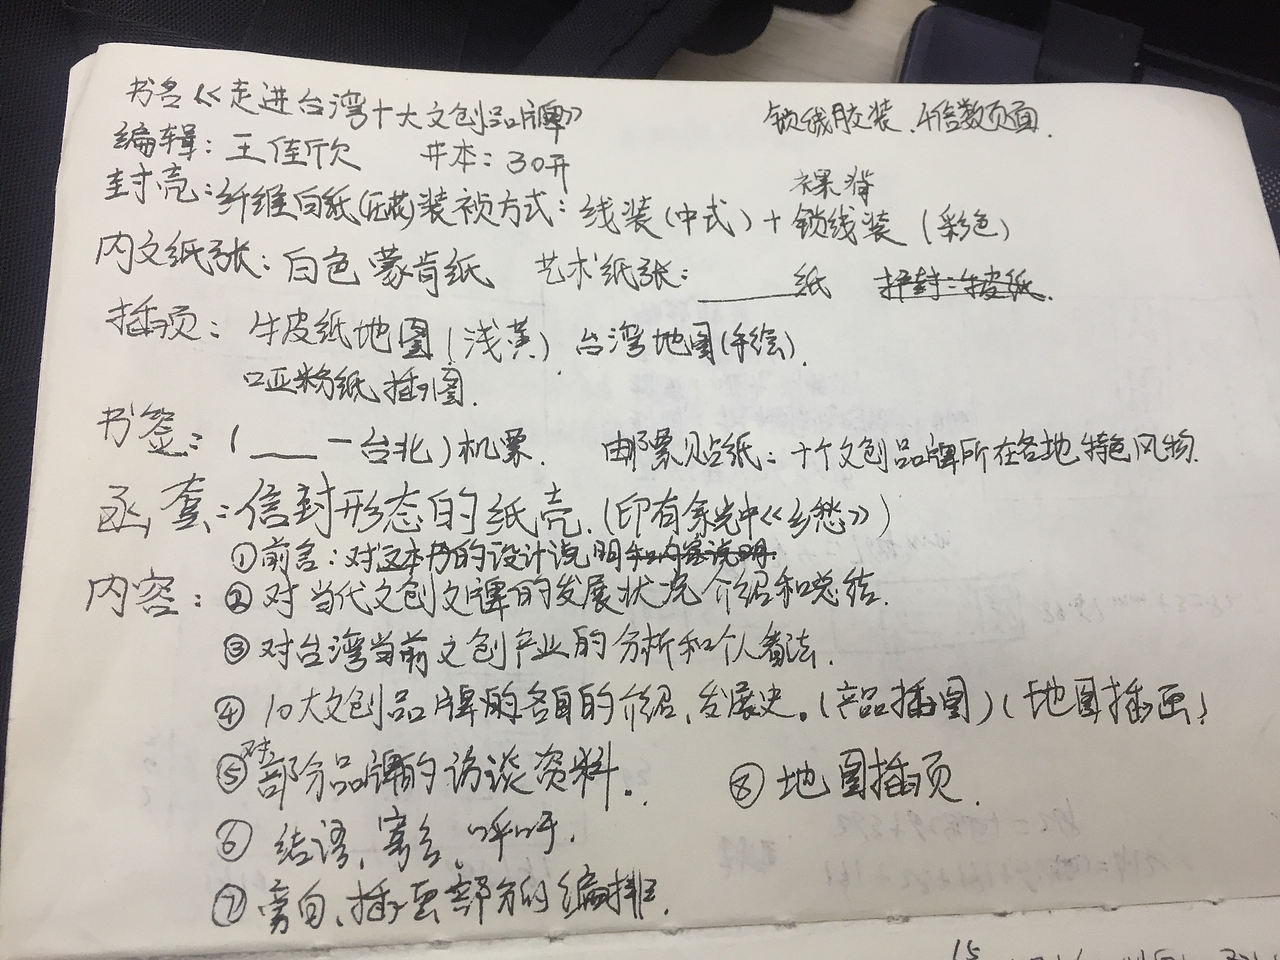 书名《走进台湾十大文创品牌》
锁线胶装、4倍数页面.
编辑：王佳欣 开本：30开
裸背
封壳：纤维白纸(压花)装祯方式：线装(中式)+锁线装(彩色)
内文纸张：白色蒙肯纸 艺术纸张：____纸
插页：牛皮纸地图(浅黄) 台湾地图(手绘).
哑粉纸插图.
书签：(___－台北)机票. 邮票贴纸：十个文创品牌所在各地特色风物.
函套：信封形态的纸壳.(印有余光中《乡愁》)
①前言：对这本书的设计说明和内容说明.
内容：②对当代文创文牌的发展状况介绍和总结.
③对台湾当前文创产业的分析和个人看法.
④10大文创品牌的各自的介绍、发展史。(产品插图)(地图插画)
⑤对部分品牌的访谈资料.
⑧地图插页.
⑥结语、寄言、呼吁.
⑦旁白、插画部分的编排.
15